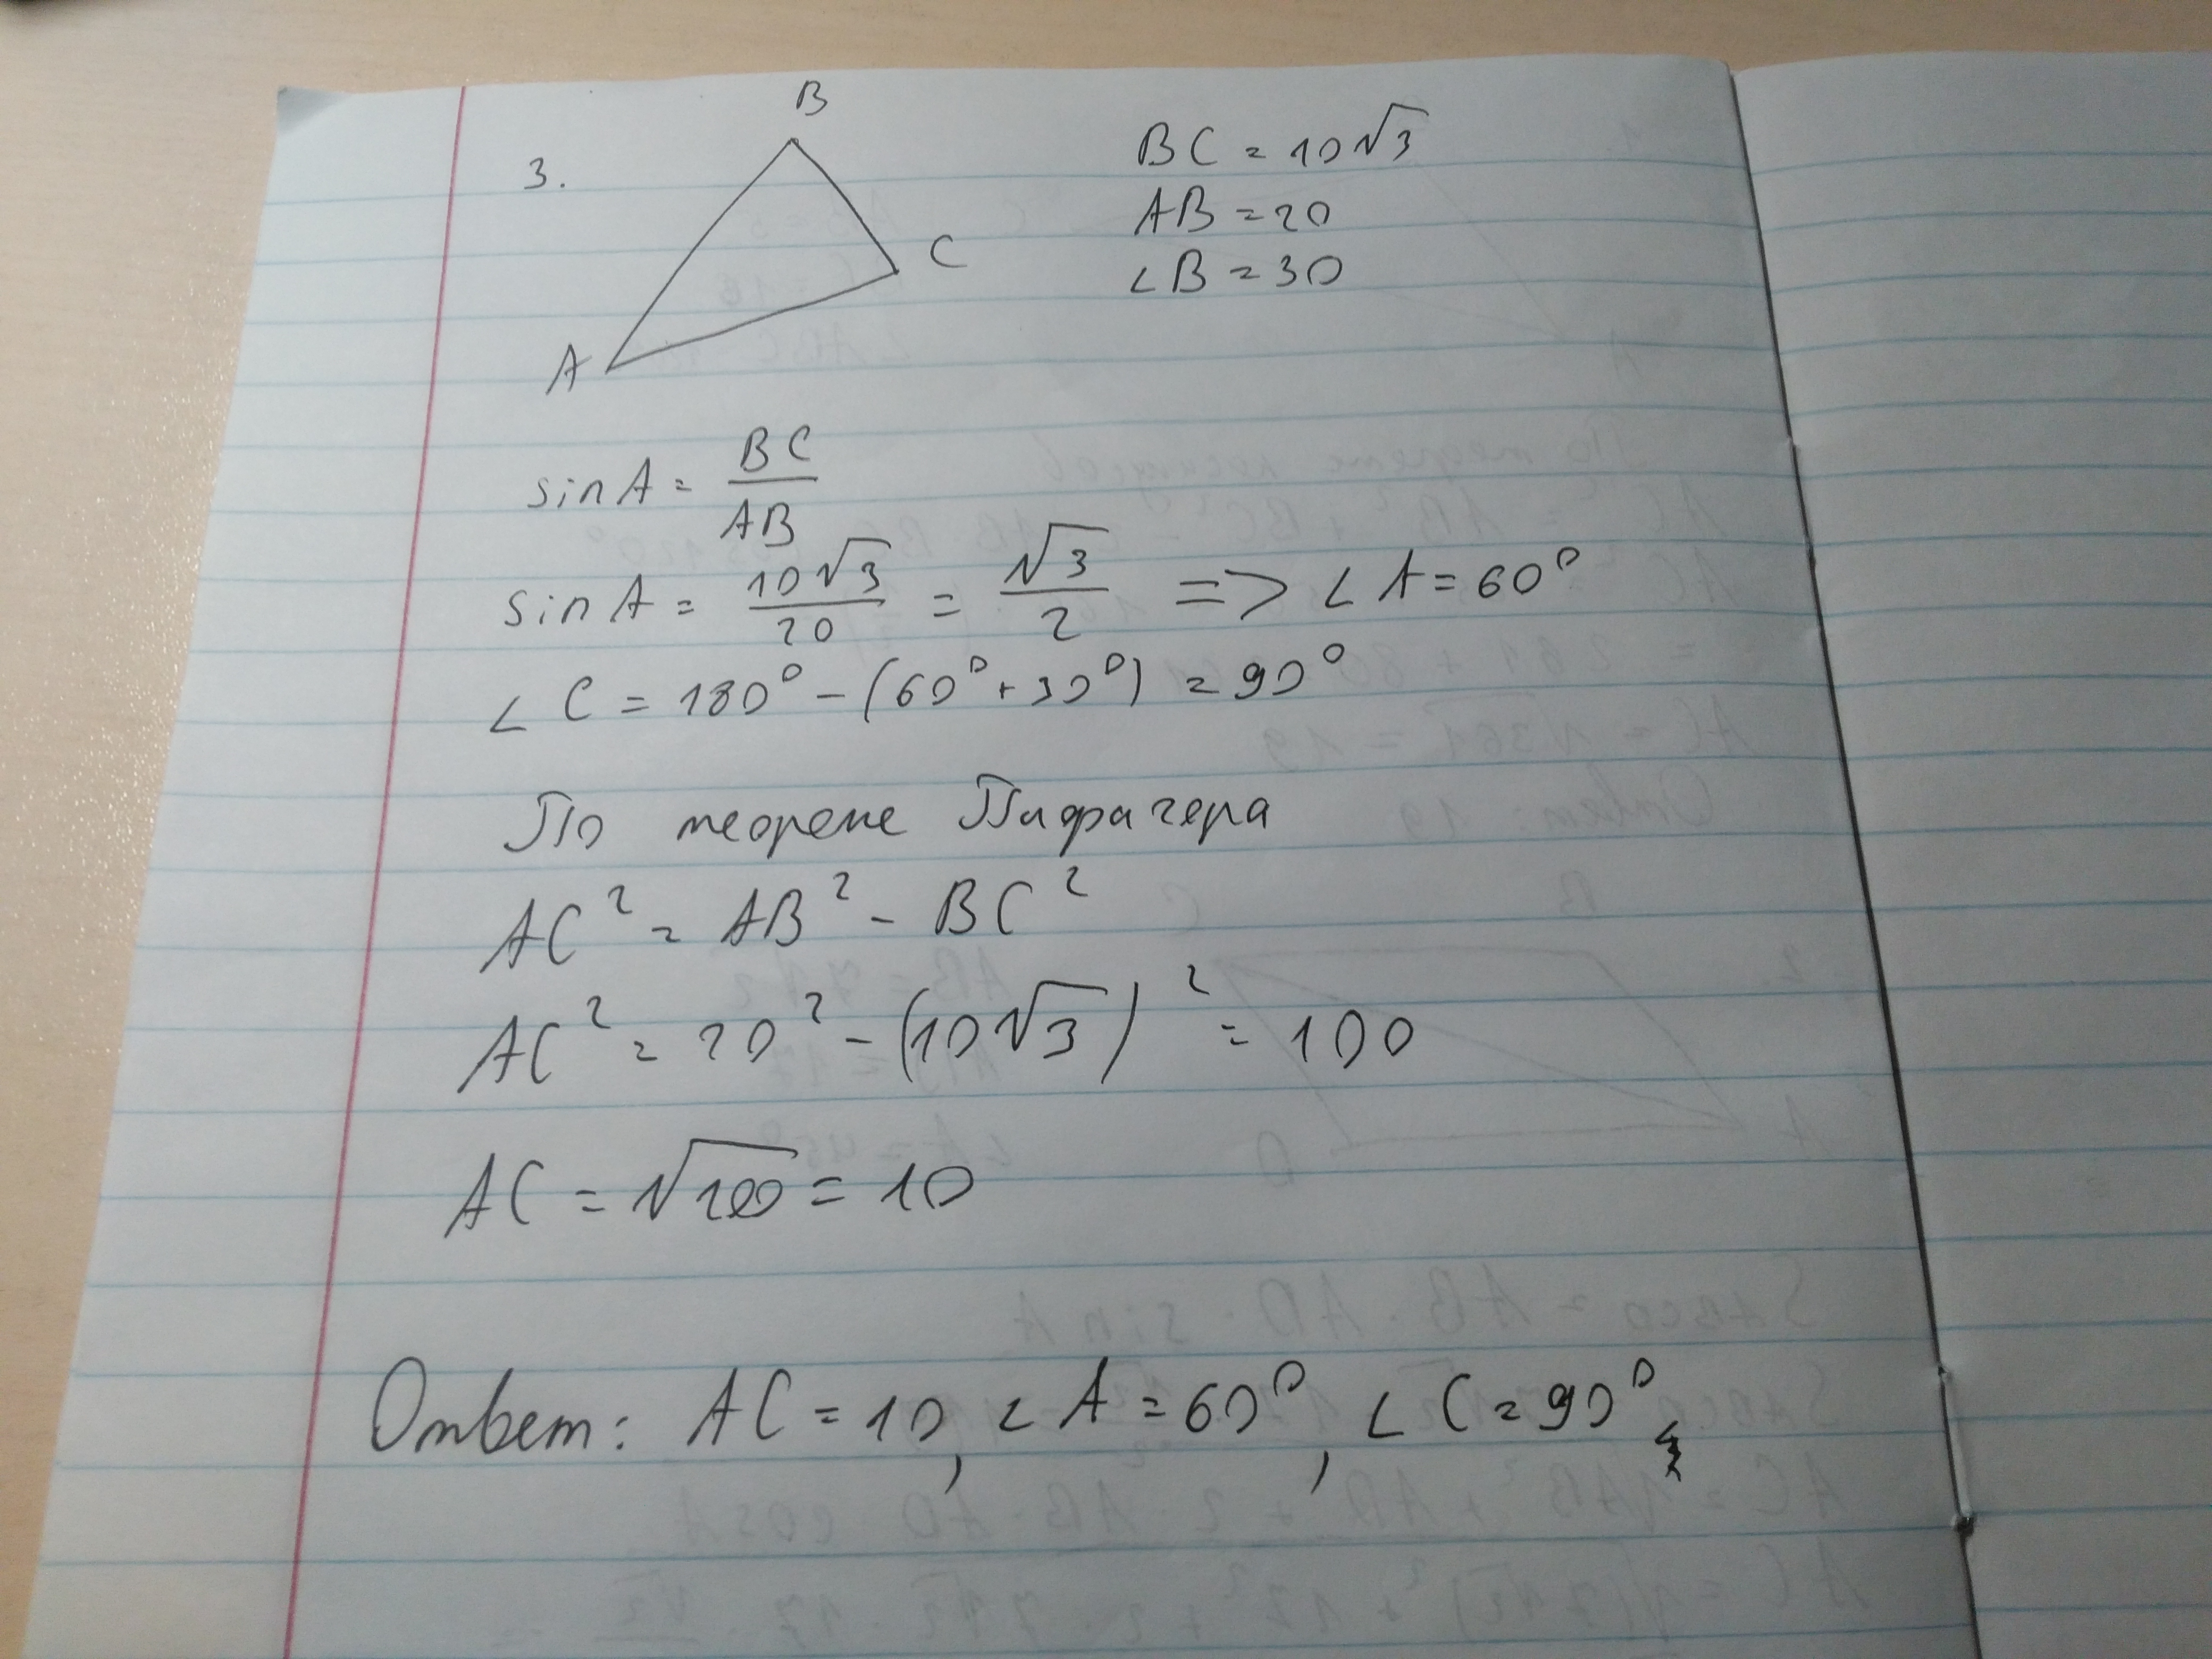 B
3.
BC = 10√3
AB = 20
∠B = 30
C
A
sin A = BC/AB
sin A = 10√3/20 = √3/2 => ∠A = 60°
∠C = 180° - (60° + 30°) = 90°
По теореме Пифагера
AC² = AB² - BC²
AC² = 20² - (10√3)² = 100
AC = √100 = 10
Ответ: AC = 10, ∠A = 60°, ∠C = 90°